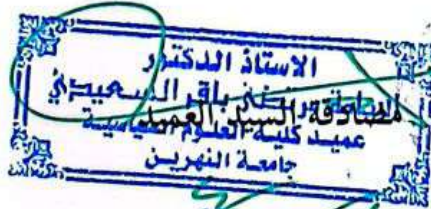 الاستاذ الدكتور
باقر السعيدي
مصادقة السيد العميد
عميد كلية العلوم السياسية
جامعة النهرين